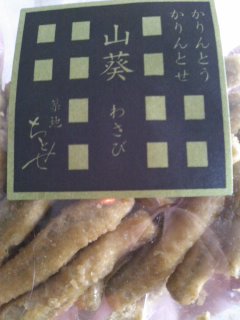 かりんとう
かりんとせ
山葵
わさび
築地
ちとせ